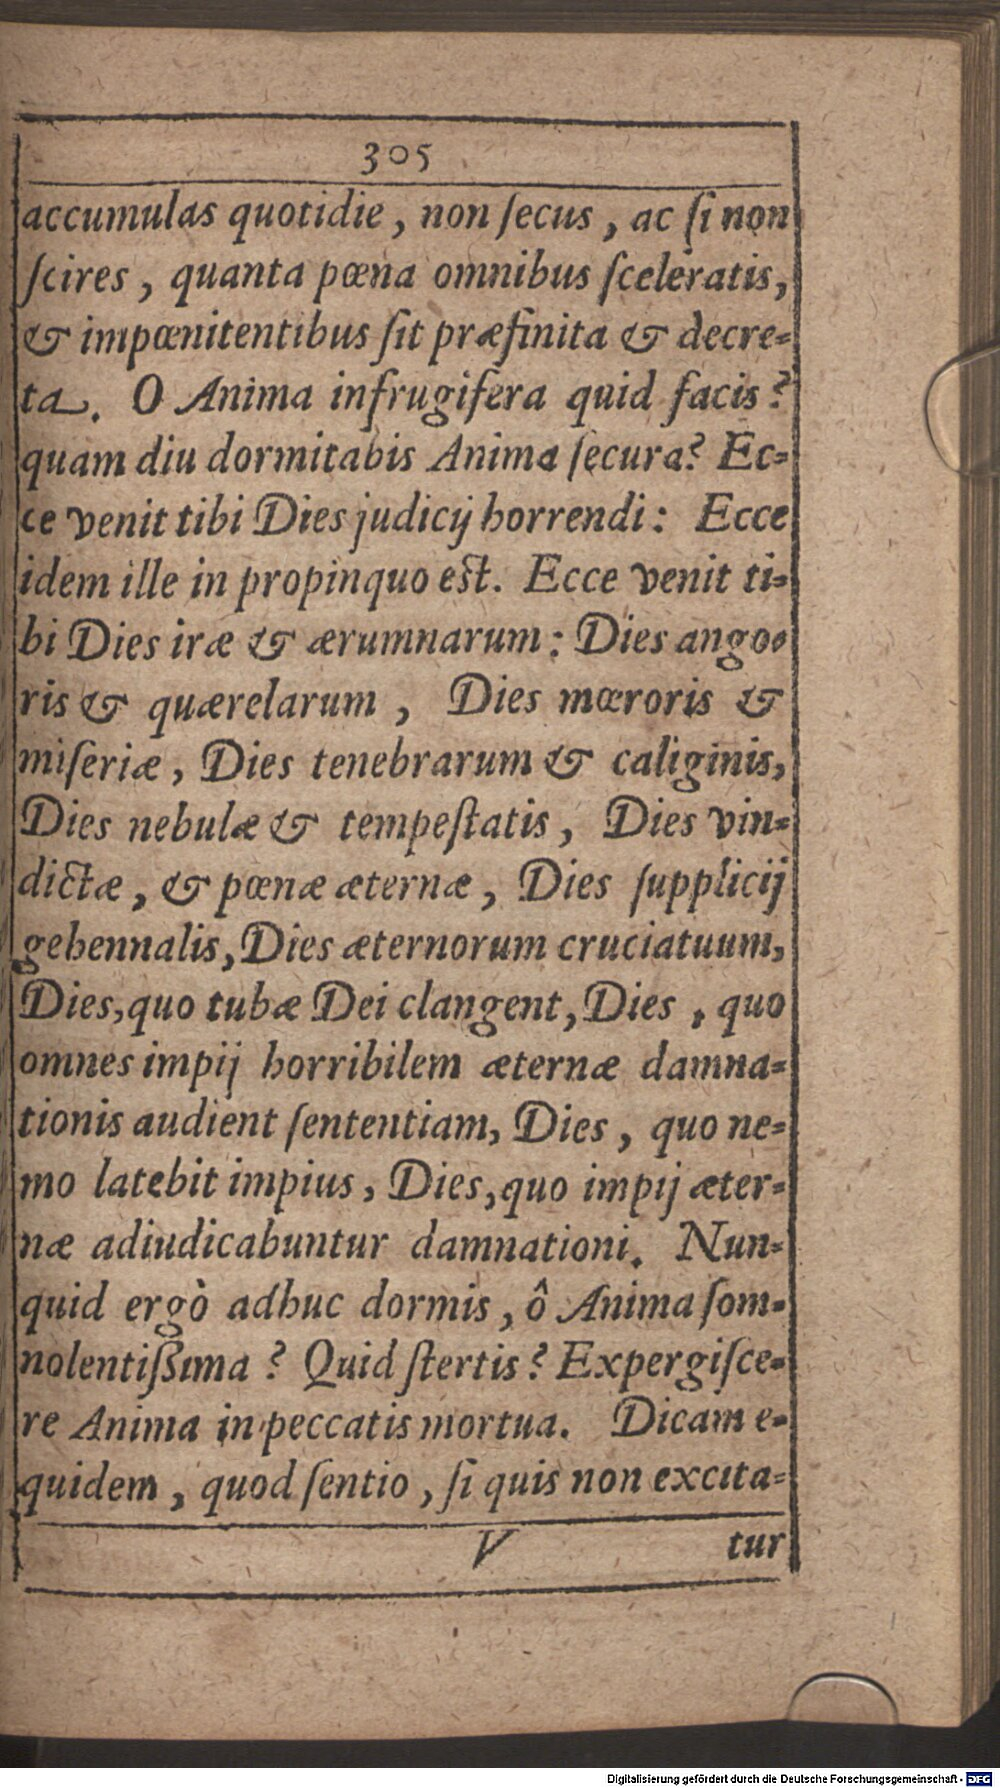 305
accumulas quotidie, non ſecus, ac ſi non
ſcires, quanta pœna omnibus ſceleratis,
& impœnitentibus ſit præfinita & decre-
ta. O Anima infrugifera quid facis?
quam diu dormitabis Anima ſecura? Ec-
ce venit tibi Dies judicij horrendi: Ecce
idem ille in propinquo est. Ecce venit ti-
bi Dies iræ & ærumnarum: Dies ango-
ris & quærelarum, Dies mœroris &
miſeriæ, Dies tenebrarum & caliginis,
Dies nebulæ & tempeſtatis, Dies vin-
dictæ, & pœnæ æternæ, Dies ſupplicij
gehennalis, Dies æternorum cruciatuum,
Dies, quo tubæ Dei clangent, Dies, quo
omnes impij horribilem æternæ damna-
tionis audient ſententiam, Dies, quo ne-
mo latebit impius, Dies, quo impij æter-
næ adiudicabuntur damnationi. Nun-
quid ergò adhuc dormis, ô Anima ſom-
nolentiſſima? Quid ſtertis? Expergiſce-
re Anima in peccatis mortua. Dicam e-
quidem, quod ſentio, ſi quis non excita-
V tur
Digitalisierung gefördert durch die Deutsche Forschungsgemeinschaft - DFG